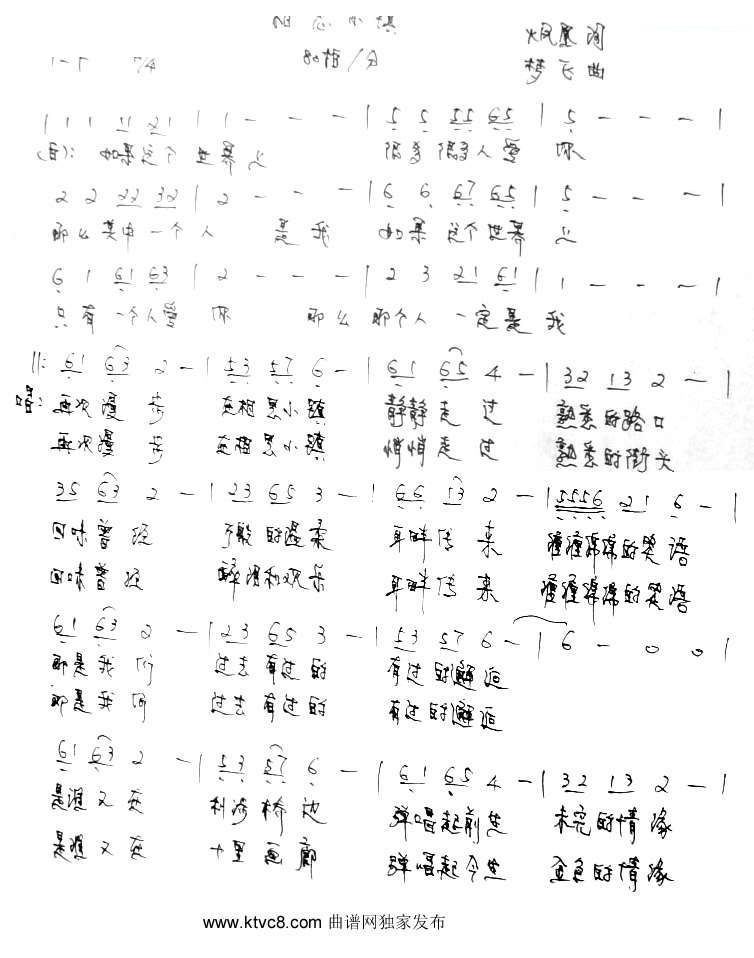 相思小镇
词
80拍/分
梦飞曲
1 1 1 1 21 | 1 - - - | 5 5 55 65 | 5 - - - |
(白): 如果这个世界上 很多很多人爱你
2 2 22 32 | 2 - - - | 6 6 67 65 | 5 - - - |
那么其中一个人 是我 如果这个世界上
6 1 61 63 | 2 - - - | 2 3 21 61 | 1 - - - |
只有一个人爱你 那么那个人一定是我
||: 61 63 2 - | 53 57 6 - | 61 65 4 - | 32 13 2 - |
唱: 再次漫步 在相思小镇 静静走过 熟悉的路口
再次漫步 在相思小镇 悄悄走过 熟悉的街头
35 63 2 - | 23 65 3 - | 66 13 2 - | 5556 21 6 - |
回味曾经 的温柔 耳畔传来 的笑语
回味曾经 和欢乐 耳畔传来 的笑语
61 63 2 - | 23 65 3 - | 53 57 6 - | 6 - 0 0 |
那是我们 过去有过的 有过的邂逅
那是我们 过去有过的 有过的邂逅
61 63 2 - | 53 57 6 - | 61 65 4 - | 32 13 2 - |
是谁又在 桥边 弹唱起前生 未完的情缘
是谁又在 十里画廊 弹唱起今生 的情缘
www.ktvc8.com 曲谱网独家发布